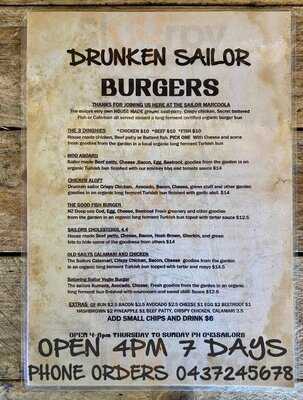 DRUNKEN SAILOR
BURGERS
THANKS FOR JOINING US HERE AT THE SAILOR MARCOOLA
The sailors very own HOUSE MADE ground beef patty, Crispy chicken, Secret battered
Fish or Calamari all served aboard a long ferment certified organic burger bun
THE 3 DINGHIES *CHICKEN $10 *BEEF $10 *FISH $10
House made chicken, Beef patty or Battered fish. PICK ONE With Cheese and some
fresh goodies from the garden in a local organic long ferment Turkish bun
MOO ABOARD
Sailor made Beef patty, Cheese, Bacon, Egg, Beetroot, goodies from the garden in an
organic Turkish bun finished with our smokey bbq and tomato sauce $14
CHICKEN ALOFT
Drunken sailor Crispy Chicken, Avocado, Bacon, Cheese, green stuff and other garden
goodies in an organic long ferment Turkish bun finished with garlic aioli. $14
THE GOOD FISH BURGER
NZ Deep sea Cod, Egg, Cheese, Beetroot Fresh greenery and other goodies
from the garden in an organic long ferment Turkish bun toped with tartar sauce $12.5
SAILORS CHOLESTEROL 4.4
House made Beef patty, Cheese, Bacon, Hash Brown, Gherkin, and green
bits to hide some of the goodness from others $14
OLD SAILYS CALAMARI AND CHICKEN
The Sailors Calamari, Crispy Chicken, Bacon, Cheese goodies from the garden
in an organic long ferment Turkish bun topped with tartar and mayo $14.5
Sailor Vegie Burger
The sailors Avocado, Cheese, Fresh goodies from the garden in an organic
long ferment bun finished with and sweet chilli Sauce $12.5
EXTRAS GF BUN $2.5 BACON $2.5 AVOCADO $2.5 CHEESE $1 EGG $2 BEETROOT $1
HASHBROWN $2 PINEAPPLE $1 BEEF PATTY, CRISPY CHICKEN, CALAMARI 3.5
ADD SMALL CHIPS AND DRINK $6
OPEN THURSDAY TO SUNDAY
OPEN 4PM 7 DAYS
PHONE ORDERS 0437245678